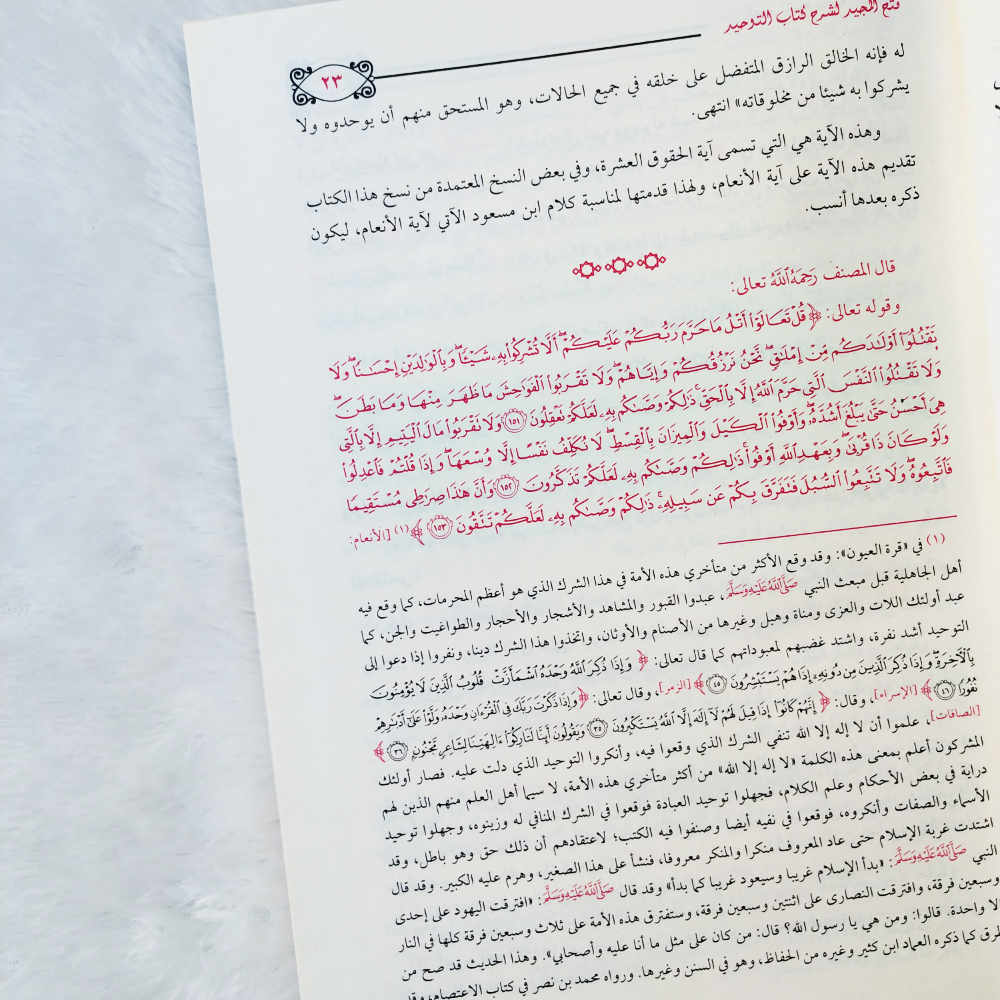 فتح المجيد لشرح كتاب التوحيد
٢٣
له فإنه الخالق الرازق المتفضل على خلقه في جميع الحالات، وهو المستحق منهم أن يوحدوه ولا
يشركوا به شيئا من مخلوقاته» انتهى.
وهذه الآية هي التي تسمى آية الحقوق العشرة، وفي بعض النسخ المعتمدة من نسخ هذا الكتاب
تقديم هذه الآية على آية الأنعام، ولهذا قدمتها لمناسبة كلام ابن مسعود الآتي لآية الأنعام، ليكون
ذكره بعدها أنسب.
قال المصنف رَحِمَهُ ٱللَّهُ تعالى:
وقوله تعالى: ﴿قُلْ تَعَالَوْا۟ أَتْلُ مَا حَرَّمَ رَبُّكُمْ عَلَيْكُمْ ۖ أَلَّا تُشْرِكُوا۟ بِهِۦ شَيْـًٔا ۖ وَبِٱلْوَٰلِدَيْنِ إِحْسَـٰنًا ۖ وَلَا
تَقْتُلُوٓا۟ أَوْلَـٰدَكُم مِّنْ إِمْلَـٰقٍ ۖ نَّحْنُ نَرْزُقُكُمْ وَإِيَّاهُمْ ۖ وَلَا تَقْرَبُوا۟ ٱلْفَوَٰحِشَ مَا ظَهَرَ مِنْهَا وَمَا بَطَنَ ۖ
وَلَا تَقْتُلُوا۟ ٱلنَّفْسَ ٱلَّتِى حَرَّمَ ٱللَّهُ إِلَّا بِٱلْحَقِّ ۚ ذَٰلِكُمْ وَصَّىٰكُم بِهِۦ لَعَلَّكُمْ تَعْقِلُونَ ١٥١ وَلَا تَقْرَبُوا۟ مَالَ ٱلْيَتِيمِ إِلَّا بِٱلَّتِى
هِىَ أَحْسَنُ حَتَّىٰ يَبْلُغَ أَشُدَّهُۥ ۖ وَأَوْفُوا۟ ٱلْكَيْلَ وَٱلْمِيزَانَ بِٱلْقِسْطِ ۖ لَا نُكَلِّفُ نَفْسًا إِلَّا وُسْعَهَا ۖ وَإِذَا قُلْتُمْ فَٱعْدِلُوا۟
وَلَوْ كَانَ ذَا قُرْبَىٰ ۖ وَبِعَهْدِ ٱللَّهِ أَوْفُوا۟ ۚ ذَٰلِكُمْ وَصَّىٰكُم بِهِۦ لَعَلَّكُمْ تَذَكَّرُونَ ١٥٢ وَأَنَّ هَـٰذَا صِرَٰطِى مُسْتَقِيمًا
فَٱتَّبِعُوهُ ۖ وَلَا تَتَّبِعُوا۟ ٱلسُّبُلَ فَتَفَرَّقَ بِكُمْ عَن سَبِيلِهِۦ ۚ ذَٰلِكُمْ وَصَّىٰكُم بِهِۦ لَعَلَّكُمْ تَتَّقُونَ ١٥٣﴾(١) [الأنعام:
(١) في «قرة العيون»: وقد وقع الأكثر من متأخري هذه الأمة في هذا الشرك الذي هو أعظم المحرمات، كما وقع فيه
أهل الجاهلية قبل مبعث النبي صَلَّى ٱللَّهُ عَلَيْهِ وَسَلَّمَ، عبدوا القبور والمشاهد والأشجار والأحجار والطواغيت والجن، كما
عبد أولئك اللات والعزى ومناة وهبل وغيرها من الأصنام والأوثان، واتخذوا هذا الشرك دينا، ونفروا إذا دعوا إلى
التوحيد أشد نفرة، واشتد غضبهم لمعبوداتهم كما قال تعالى: ﴿وَإِذَا ذُكِرَ ٱللَّهُ وَحْدَهُ ٱشْمَأَزَّتْ قُلُوبُ ٱلَّذِينَ لَا يُؤْمِنُونَ
بِٱلْـَٔاخِرَةِ ۖ وَإِذَا ذُكِرَ ٱلَّذِينَ مِن دُونِهِۦٓ إِذَا هُمْ يَسْتَبْشِرُونَ ٤٥﴾ [الزمر]، وقال تعالى: ﴿وَإِذَا ذَكَرْتَ رَبَّكَ فِى ٱلْقُرْءَانِ وَحْدَهُۥ وَلَّوْا۟ عَلَىٰٓ أَدْبَـٰرِهِمْ
نُفُورًا ٤٦﴾ [الإسراء]، وقال: ﴿إِنَّهُمْ كَانُوٓا۟ إِذَا قِيلَ لَهُمْ لَآ إِلَـٰهَ إِلَّا ٱللَّهُ يَسْتَكْبِرُونَ ٣٥ وَيَقُولُونَ أَئِنَّا لَتَارِكُوٓا۟ ءَالِهَتِنَا لِشَاعِرٍ مَّجْنُونٍ ٣٦﴾
[الصافات]، علموا أن لا إله إلا الله تنفي الشرك الذي وقعوا فيه، وأنكروا التوحيد الذي دلت عليه. فصار أولئك
المشركون أعلم بمعنى هذه الكلمة «لا إله إلا الله» من أكثر متأخري هذه الأمة، لا سيما أهل العلم منهم الذين لهم
دراية في بعض الأحكام وعلم الكلام، فجهلوا توحيد العبادة فوقعوا في الشرك المنافي له وزينوه، وجهلوا توحيد
الأسماء والصفات وأنكروه، فوقعوا في نفيه أيضا وصنفوا فيه الكتب؛ لاعتقادهم أن ذلك حق وهو باطل، وقد
اشتدت غربة الإسلام حتى عاد المعروف منكرا والمنكر معروفا، فنشأ على هذا الصغير، وهرم عليه الكبير. وقد قال
النبي صَلَّى ٱللَّهُ عَلَيْهِ وَسَلَّمَ: «بدأ الإسلام غريبا وسيعود غريبا كما بدأ» وقد قال صَلَّى ٱللَّهُ عَلَيْهِ وَسَلَّمَ: «افترقت اليهود على إحدى
وسبعين فرقة، وافترقت النصارى على اثنتين وسبعين فرقة، وستفترق هذه الأمة على ثلاث وسبعين فرقة كلها في النار
إلا واحدة. قالوا: ومن هي يا رسول الله؟ قال: من كان على مثل ما أنا عليه وأصحابي». وهذا الحديث قد صح من
طرق كما ذكره العماد ابن كثير وغيره من الحفاظ، وهو في السنن وغيرها. ورواه محمد بن نصر في كتاب الاعتصام، وقد